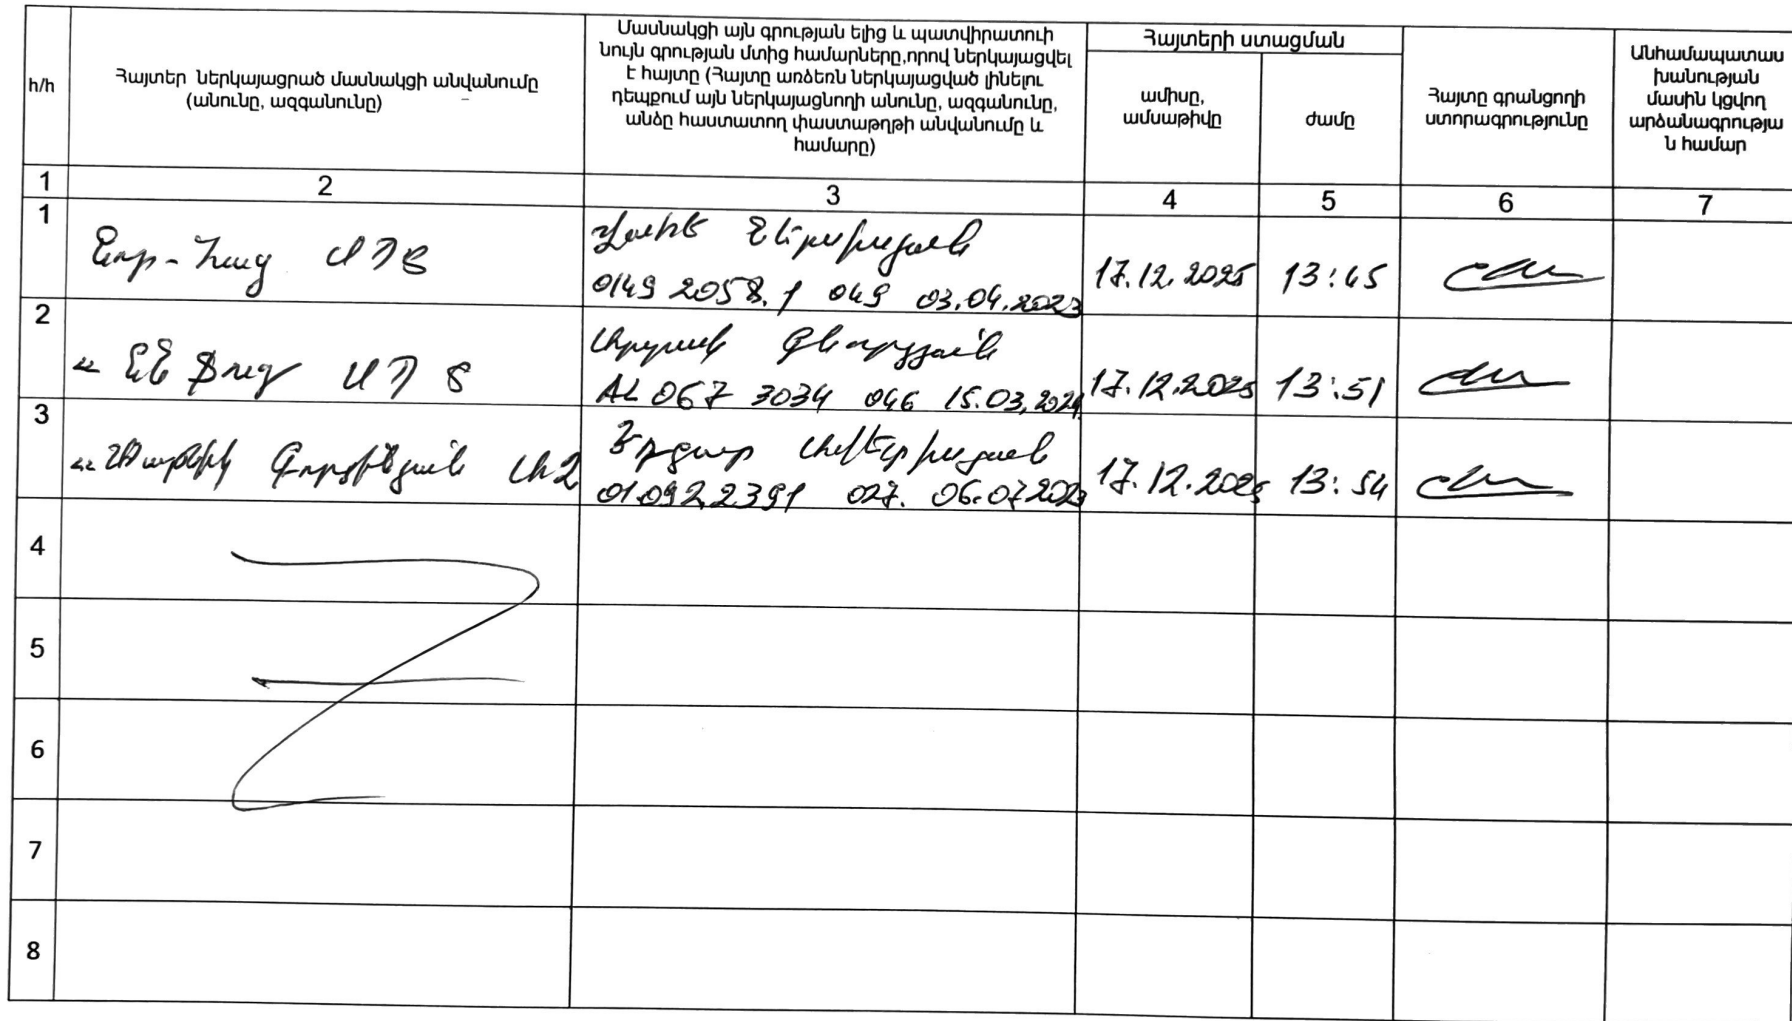 հ/հ
Հայտեր ներկայացրած մասնակցի անվանումը
(անունը, ազգանունը)
Մասնակցի այն գրության ելից և պատվիրատուի
նույն գրության մտից համարները,որով ներկայացվել
է հայտը (Հայտը առձեռն ներկայացված լինելու
դեպքում այն ներկայացնողի անունը, ազգանունը,
անձը հաստատող փաստաթղթի անվանումը և
համարը)
Հայտերի ստացման
ամիսը,
ամսաթիվը
ժամը
Հայտը գրանցողի
ստորագրությունը
Անհամապատաս
խանության
մասին կցվող
արձանագրությա
ն համար
1 2 3 4 5 6 7
1
Նոր-Հաց ՍՊԸ
0149 2058.1 049 03.04.2023
17.12.2025 13:45
2
ՍՊԸ
Գևորգյան
AL 067 3034 046 15.03.2024
17.12.2025 13:51
3
ԱՁ
01.092.2391 027. 06.07.2023
17.12.2025 13:54
4
5
6
7
8